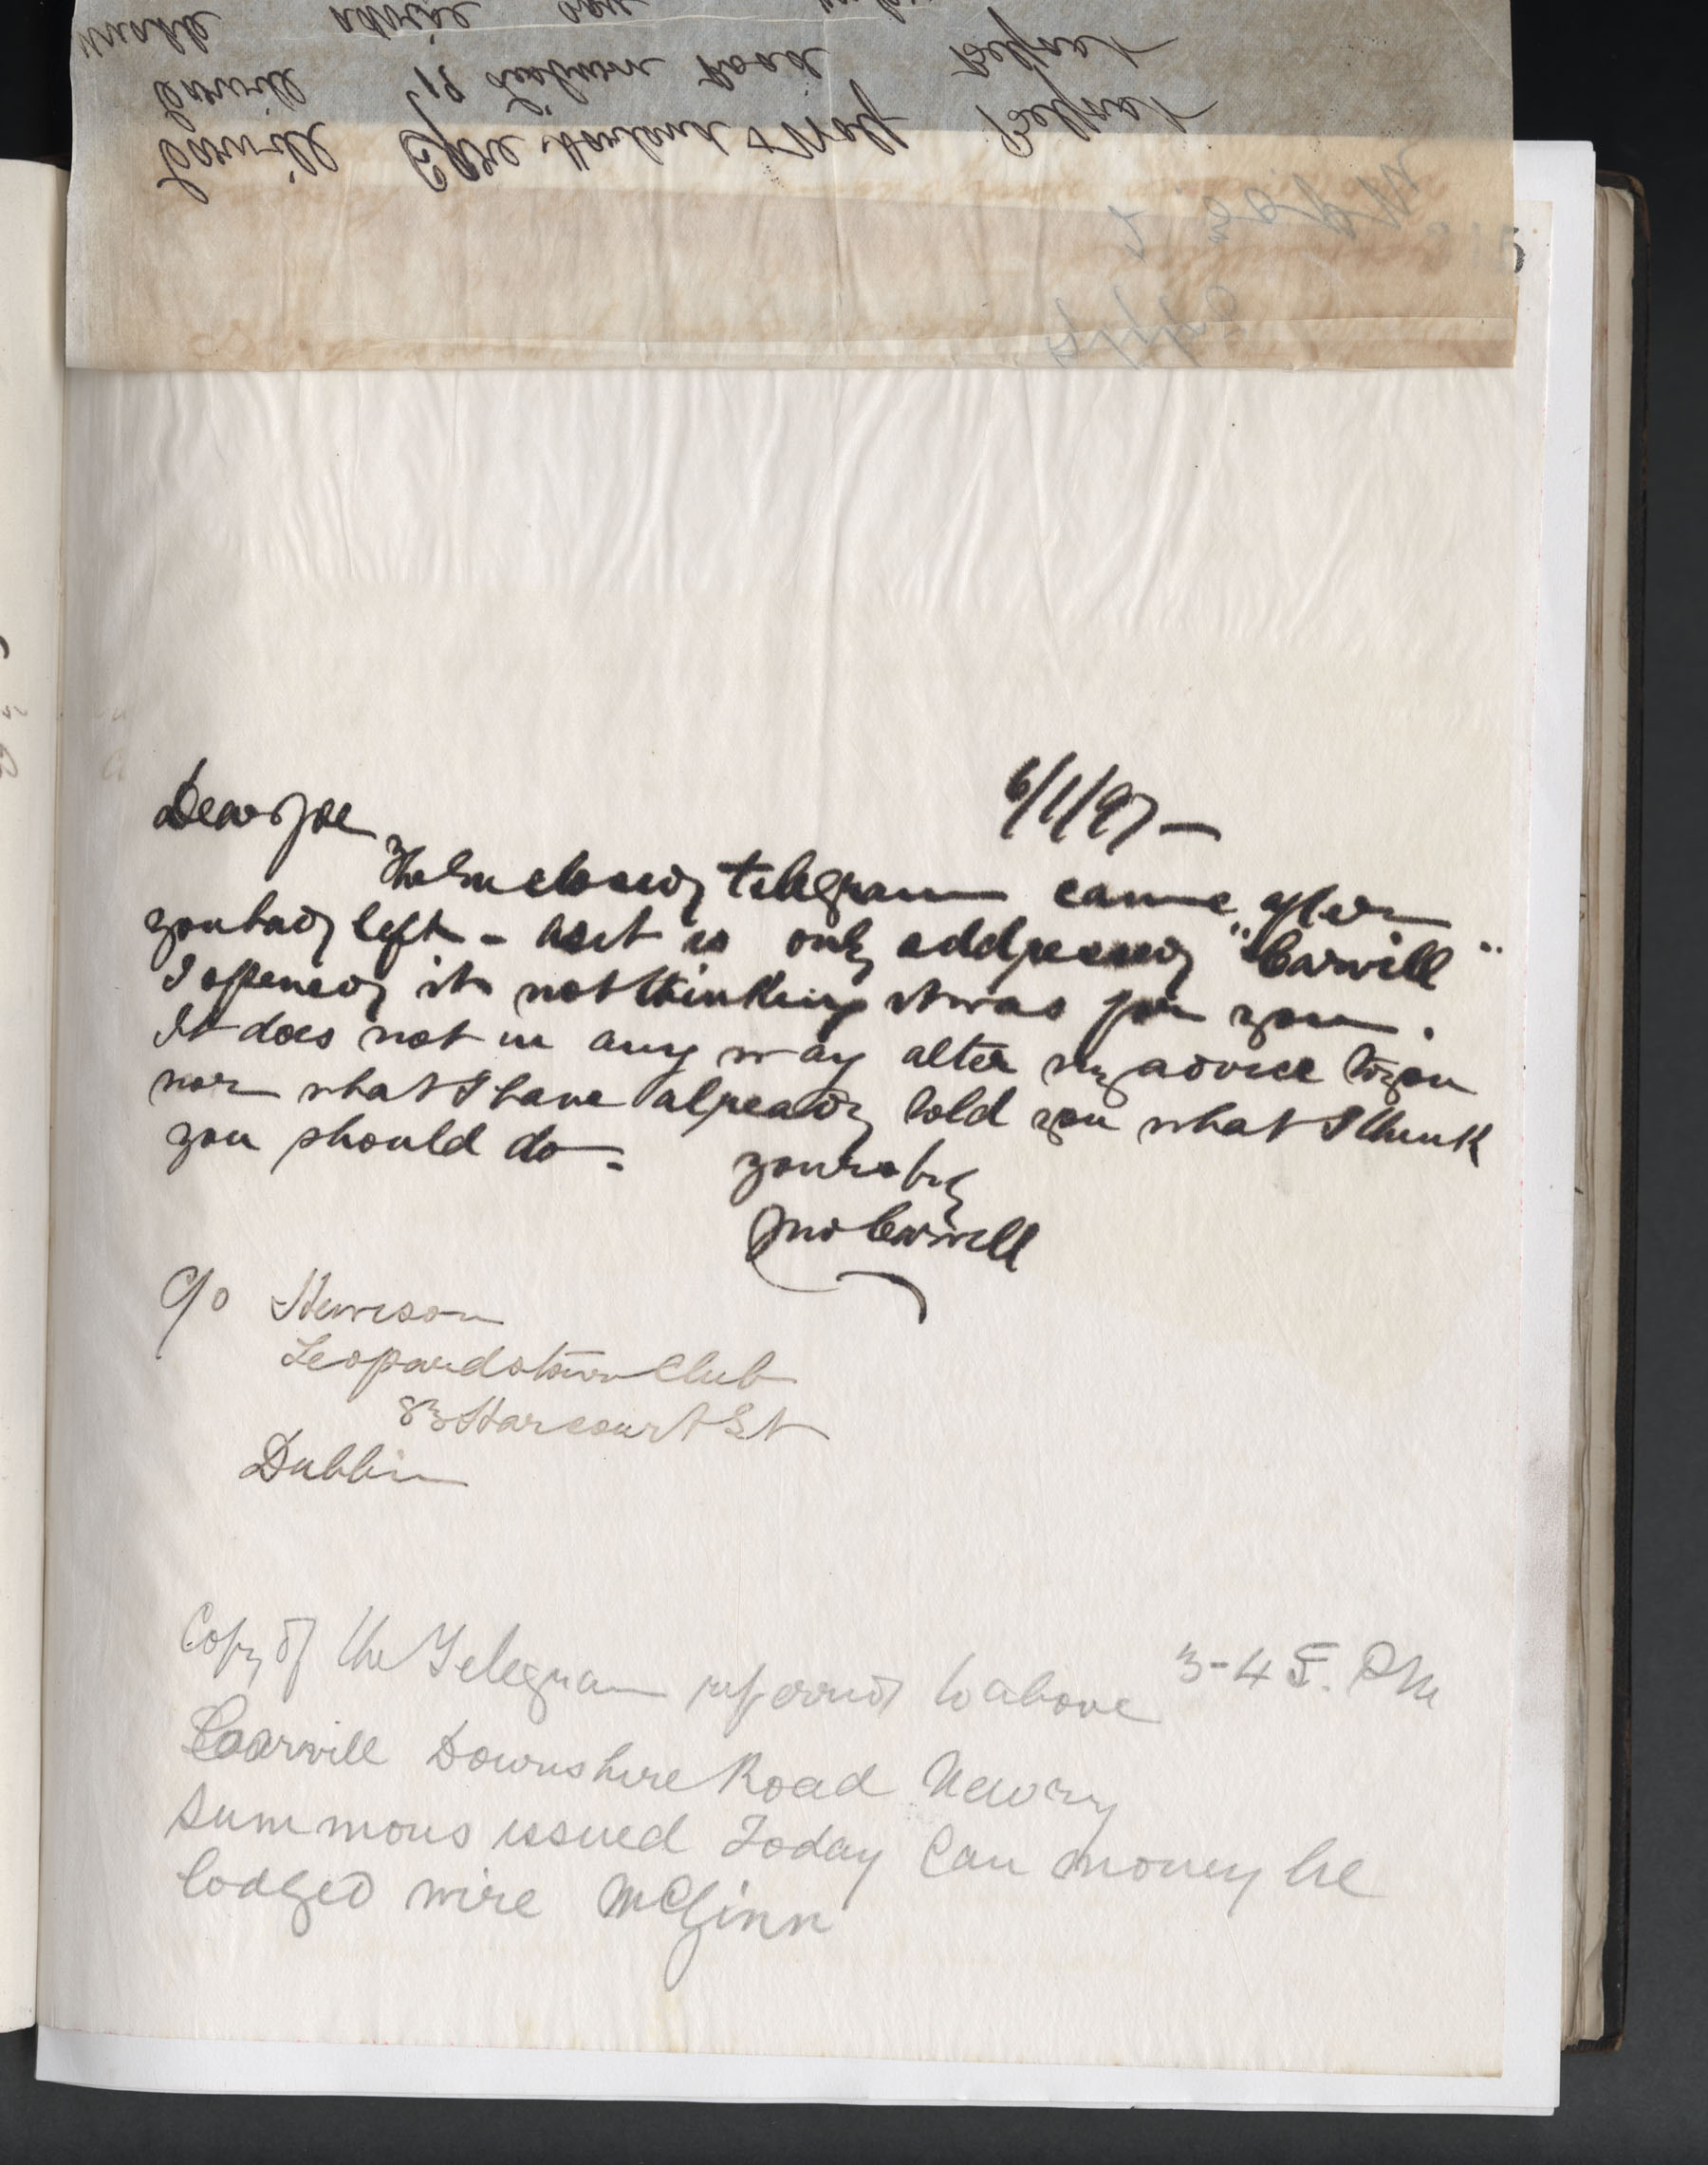 Carvill Care Harland & Wolff Belfast
Carvill 19 Lisburn Road Belfast
6/1/97 —
Dear Joe
The Enclosed telegram came after
you had left - as it is only addressed "Carvill"
I opened it not thinking it was for you.
It does not in any way alter my advice to you
nor what I have already told you what I think
you should do -
yours trly
Jno Carvill
C/o Hewson
Leopardstown Club
83 Harcourt St
Dublin
Copy of the Telegram referred to above 3-45. PM
Carvill Downshire Road Newry
Summons issued Today Can money be
lodged wire McGinn